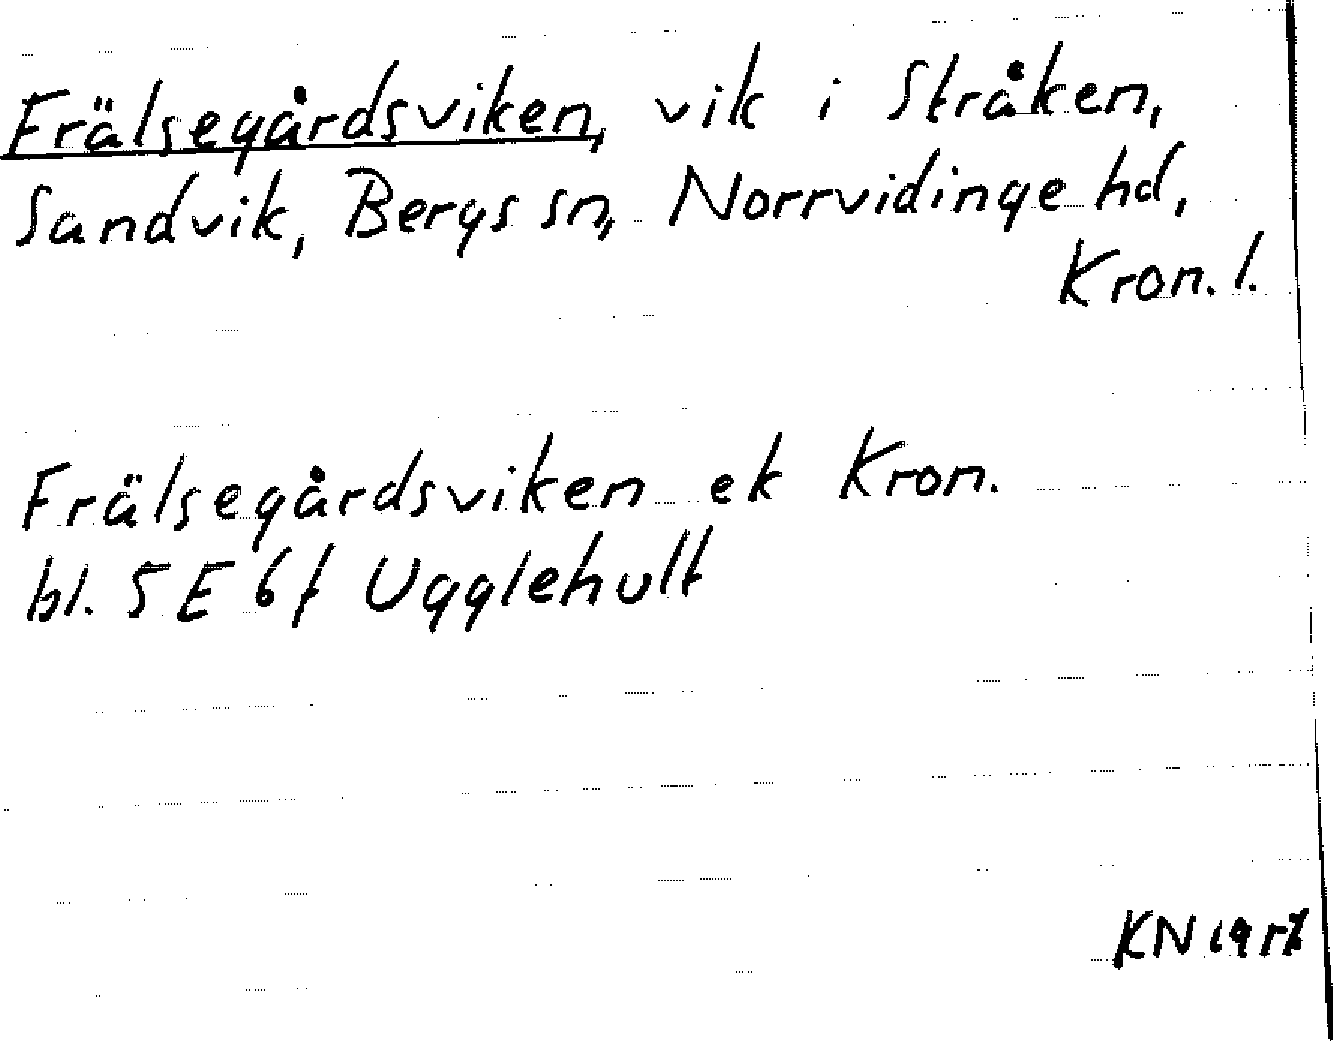 Frälsegårdsviken, vik i Stråken,
Sandvik, Bergs sn, Norrvidinge hd,
Kron. l.
Frälsegårdsviken ek Kron.
bl. 5 E 6 f Ugglehult
KN